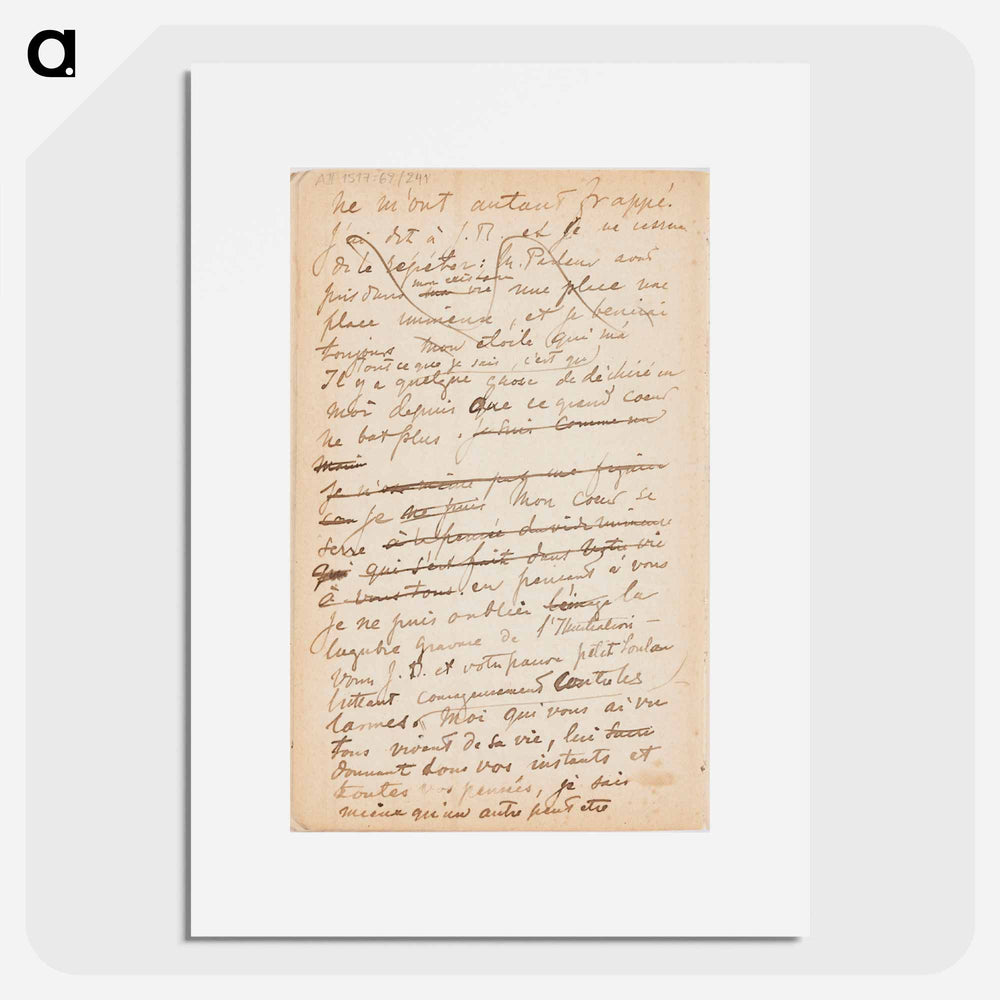 a.
AII 1517:69/241
ne m'ont autant frappé.
J'ai dit à J.B. et je ne cesserai
de le répéter: M. Pasteur avait
mon existence
pris dans ma vie une place une
place immense, et je benirai
toujours mon étoile qui m'a
Tout ce que je sais, c'est qu'
Il y a quelque chose de déchiré en
moi depuis que ce grand coeur
ne bat plus. je suis comme un
marin
Je n'ose même pas me figurer
Je ne puis Mon coeur se
serre à la pensée du vide immense
qui qui s'est fait dans votre vie
à vous tous. en pensant à vous
Je ne puis oublier l'image la
lugubre gravure de l'Illustration –
Vous J.B. et votre pauvre petit
luttant courageusement contre les
larmes. Moi qui vous ai vu
tous vivant de sa vie, lui
donnant tous vos instants et
toutes vos pensées, je sais
mieux qu'un autre peut etre